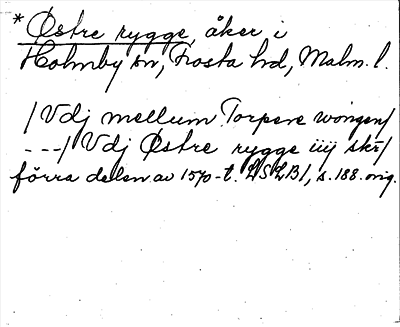 * Östre rygge, åker i
Holmby sn, Frosta hd, Malm. l.
/Vdj mellum Torpere wongen/
---/Vdj Östre rygge iiij skr/
förra delen av 1570-t. LSLB/, s. 188. orig.